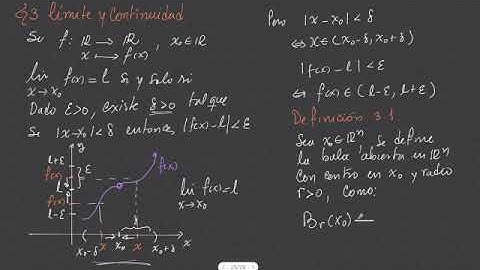 §3 límite y Continuidad
Sea f: ℝ → ℝ , x₀∈ℝ
x ↦ f(x)
lim f(x) = l si y solo si
x→x₀
Dado ε>0, existe δ>0 tal que
Si |x-x₀|<δ entonces |f(x)-l|<ε
y
l+ε
f(x)
l
f(x)
l-ε
ε
f(x)
lim f(x)=l
x→x₀
x₀-δ x x₀ x x₀+δ x
Pero |x-x₀|<δ
⇔ x∈(x₀-δ, x₀+δ)
|f(x)-l|<ε
⇔ f(x)∈(l-ε, l+ε)
Definición 3.1
Sea x₀∈ℝⁿ se define
la bola abierta en ℝⁿ
con centro en x₀ y radio
r>0, como:
Bᵣ(x₀)=